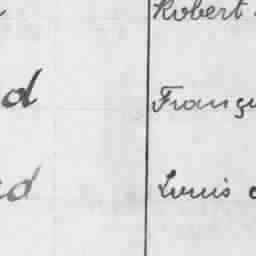 Robert
d
Franç
d
Louis